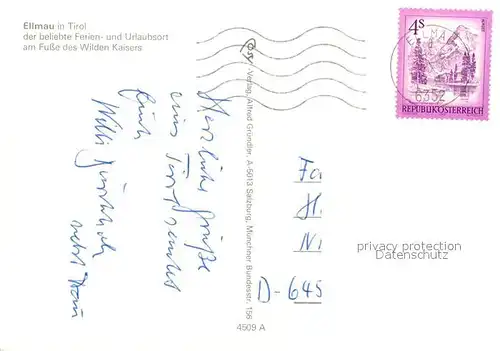 Ellmau in Tirol
der beliebte Ferien- und Urlaubsort
am Fuße des Wilden Kaisers
4S
REPUBLIK ÖSTERREICH
6352
Verlag Alfred Gründler, A-5013 Salzburg, Münchner Bundesstr. 156
4509 A
Herzliche Grüße
aus Tirol sendet
Euch
Willi
nebst Frau
Fa
H
N
D-645
privacy protection
Datenschutz